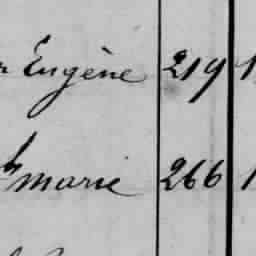 Eugène 219 1
marie 266 1